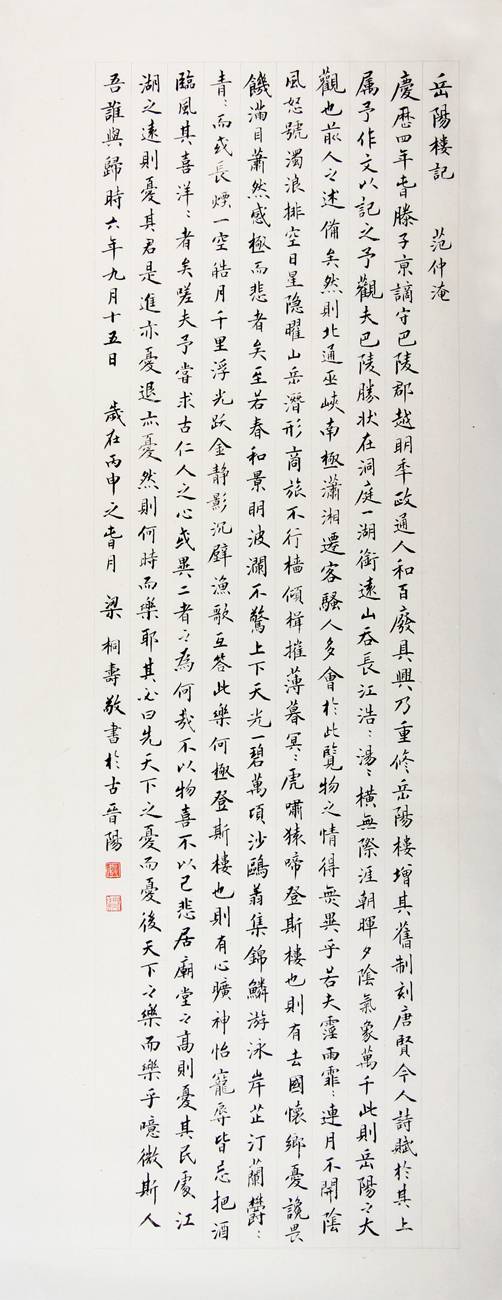 岳陽楼記 范仲淹
慶歷四年春滕子京謫守巴陵郡越明年政通人和百廢具興乃重修岳陽楼增其舊制刻唐賢今人詩賦於其上
属予作文以記之予觀夫巴陵勝状在洞庭一湖銜遠山吞長江浩:湯:橫無際涯朝暉夕陰氣象萬千此則岳陽之大
觀也前人之述備矣然則北通巫峽南極瀟湘遷客騷人多會於此覽物之情得無異乎若夫霪雨霏:連月不開陰
風怒號濁浪排空日星隐曜山岳潛形商旅不行檣傾楫摧薄暮冥:虎嘯猿啼登斯楼也則有去國懷鄉憂讒畏
饑滿目蕭然感極而悲者矣至若春和景明波瀾不驚上下天光一碧萬頃沙鷗翕集錦鱗游泳岸芷汀蘭鬱:
青:而或長煙一空皓月千里浮光跃金静影沉璧漁歌互答此樂何極登斯楼也則有心曠神怡寵辱皆忘把酒
臨風其喜洋:者矣嗟夫予嘗求古仁人之心或異二者之為何哉不以物喜不以己悲居廟堂之高則憂其民處江
湖之遠則憂其君是進亦憂退亦憂然則何時而樂耶其必曰先天下之憂而憂後天下之樂而樂乎噫微斯人
吾誰與歸時六年九月十五日 歲在丙申之春月 梁桐壽敬書於古晉陽